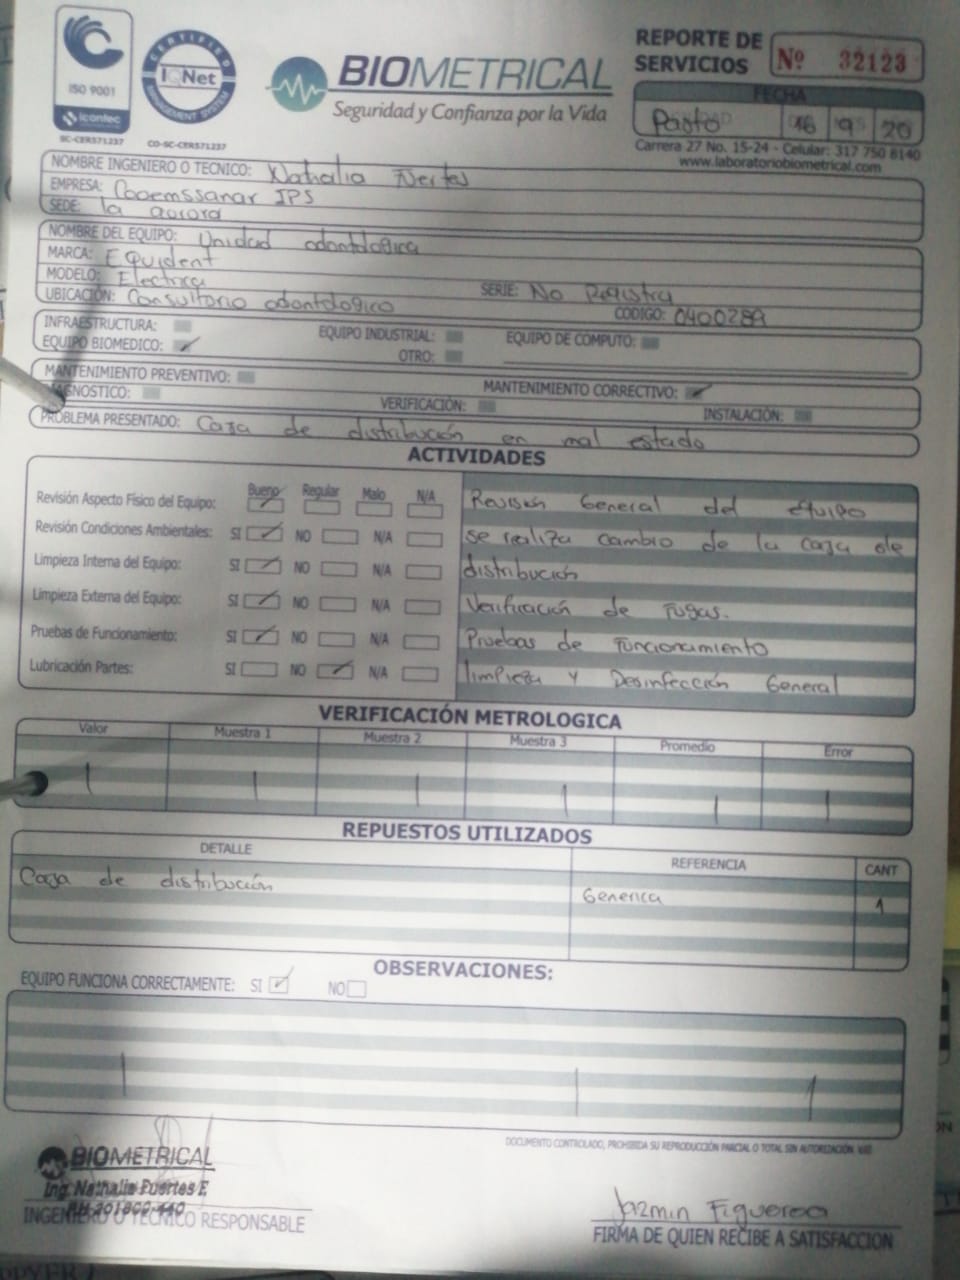 ISO 9001
icontec
SC-CER571237
CERTIFIED
IQNet
MANAGEMENT SYSTEM
CO-SC-CER571237
BIOMETRICAL
Seguridad y Confianza por la Vida
REPORTE DE SERVICIOS Nº 32123
FECHA
Pasto 16 9 20
Carrera 27 No. 15-24 - Celular: 317 750 8140
www.laboratoriobiometrical.com
NOMBRE INGENIERO O TECNICO: Nathalia Fuertes
EMPRESA: Cooemssanar IPS
SEDE: la aurora
NOMBRE DEL EQUIPO: Unidad odontologica
MARCA: Equident
MODELO: Electrica SERIE: No Registra
UBICACIÓN: Consultorio odontologico CODIGO: 0400289
INFRAESTRUCTURA: EQUIPO INDUSTRIAL: EQUIPO DE COMPUTO:
EQUIPO BIOMEDICO: ✓ OTRO:
MANTENIMIENTO PREVENTIVO: MANTENIMIENTO CORRECTIVO: ✓
DIAGNOSTICO: VERIFICACIÓN: INSTALACIÓN:
PROBLEMA PRESENTADO: Caja de distribución en mal estado
ACTIVIDADES
Bueno Regular Malo N/A
Revisión Aspecto Físico del Equipo: ✓
Revisión Condiciones Ambientales: SI ✓ NO N/A
Limpieza Interna del Equipo: SI ✓ NO N/A
Limpieza Externa del Equipo: SI ✓ NO N/A
Pruebas de Funcionamiento: SI ✓ NO N/A
Lubricación Partes: SI NO ✓ N/A
Revisión General del equipo
se realiza cambio de la caja de
distribución
Verificación de Fugas.
Pruebas de Funcionamiento
limpieza y Desinfección General
VERIFICACIÓN METROLOGICA
Valor Muestra 1 Muestra 2 Muestra 3 Promedio Error
REPUESTOS UTILIZADOS
DETALLE REFERENCIA CANT
Caja de distribución Generica 1
OBSERVACIONES:
EQUIPO FUNCIONA CORRECTAMENTE: SI ✓ NO
DOCUMENTO CONTROLADO, PROHIBIDA SU REPRODUCCIÓN PARCIAL O TOTAL SIN AUTORIZACIÓN.
BIOMETRICAL
Ing. Nathalia Fuertes F.
INGENIERO O TECNICO RESPONSABLE
Jazmin Figueroa
FIRMA DE QUIEN RECIBE A SATISFACCION